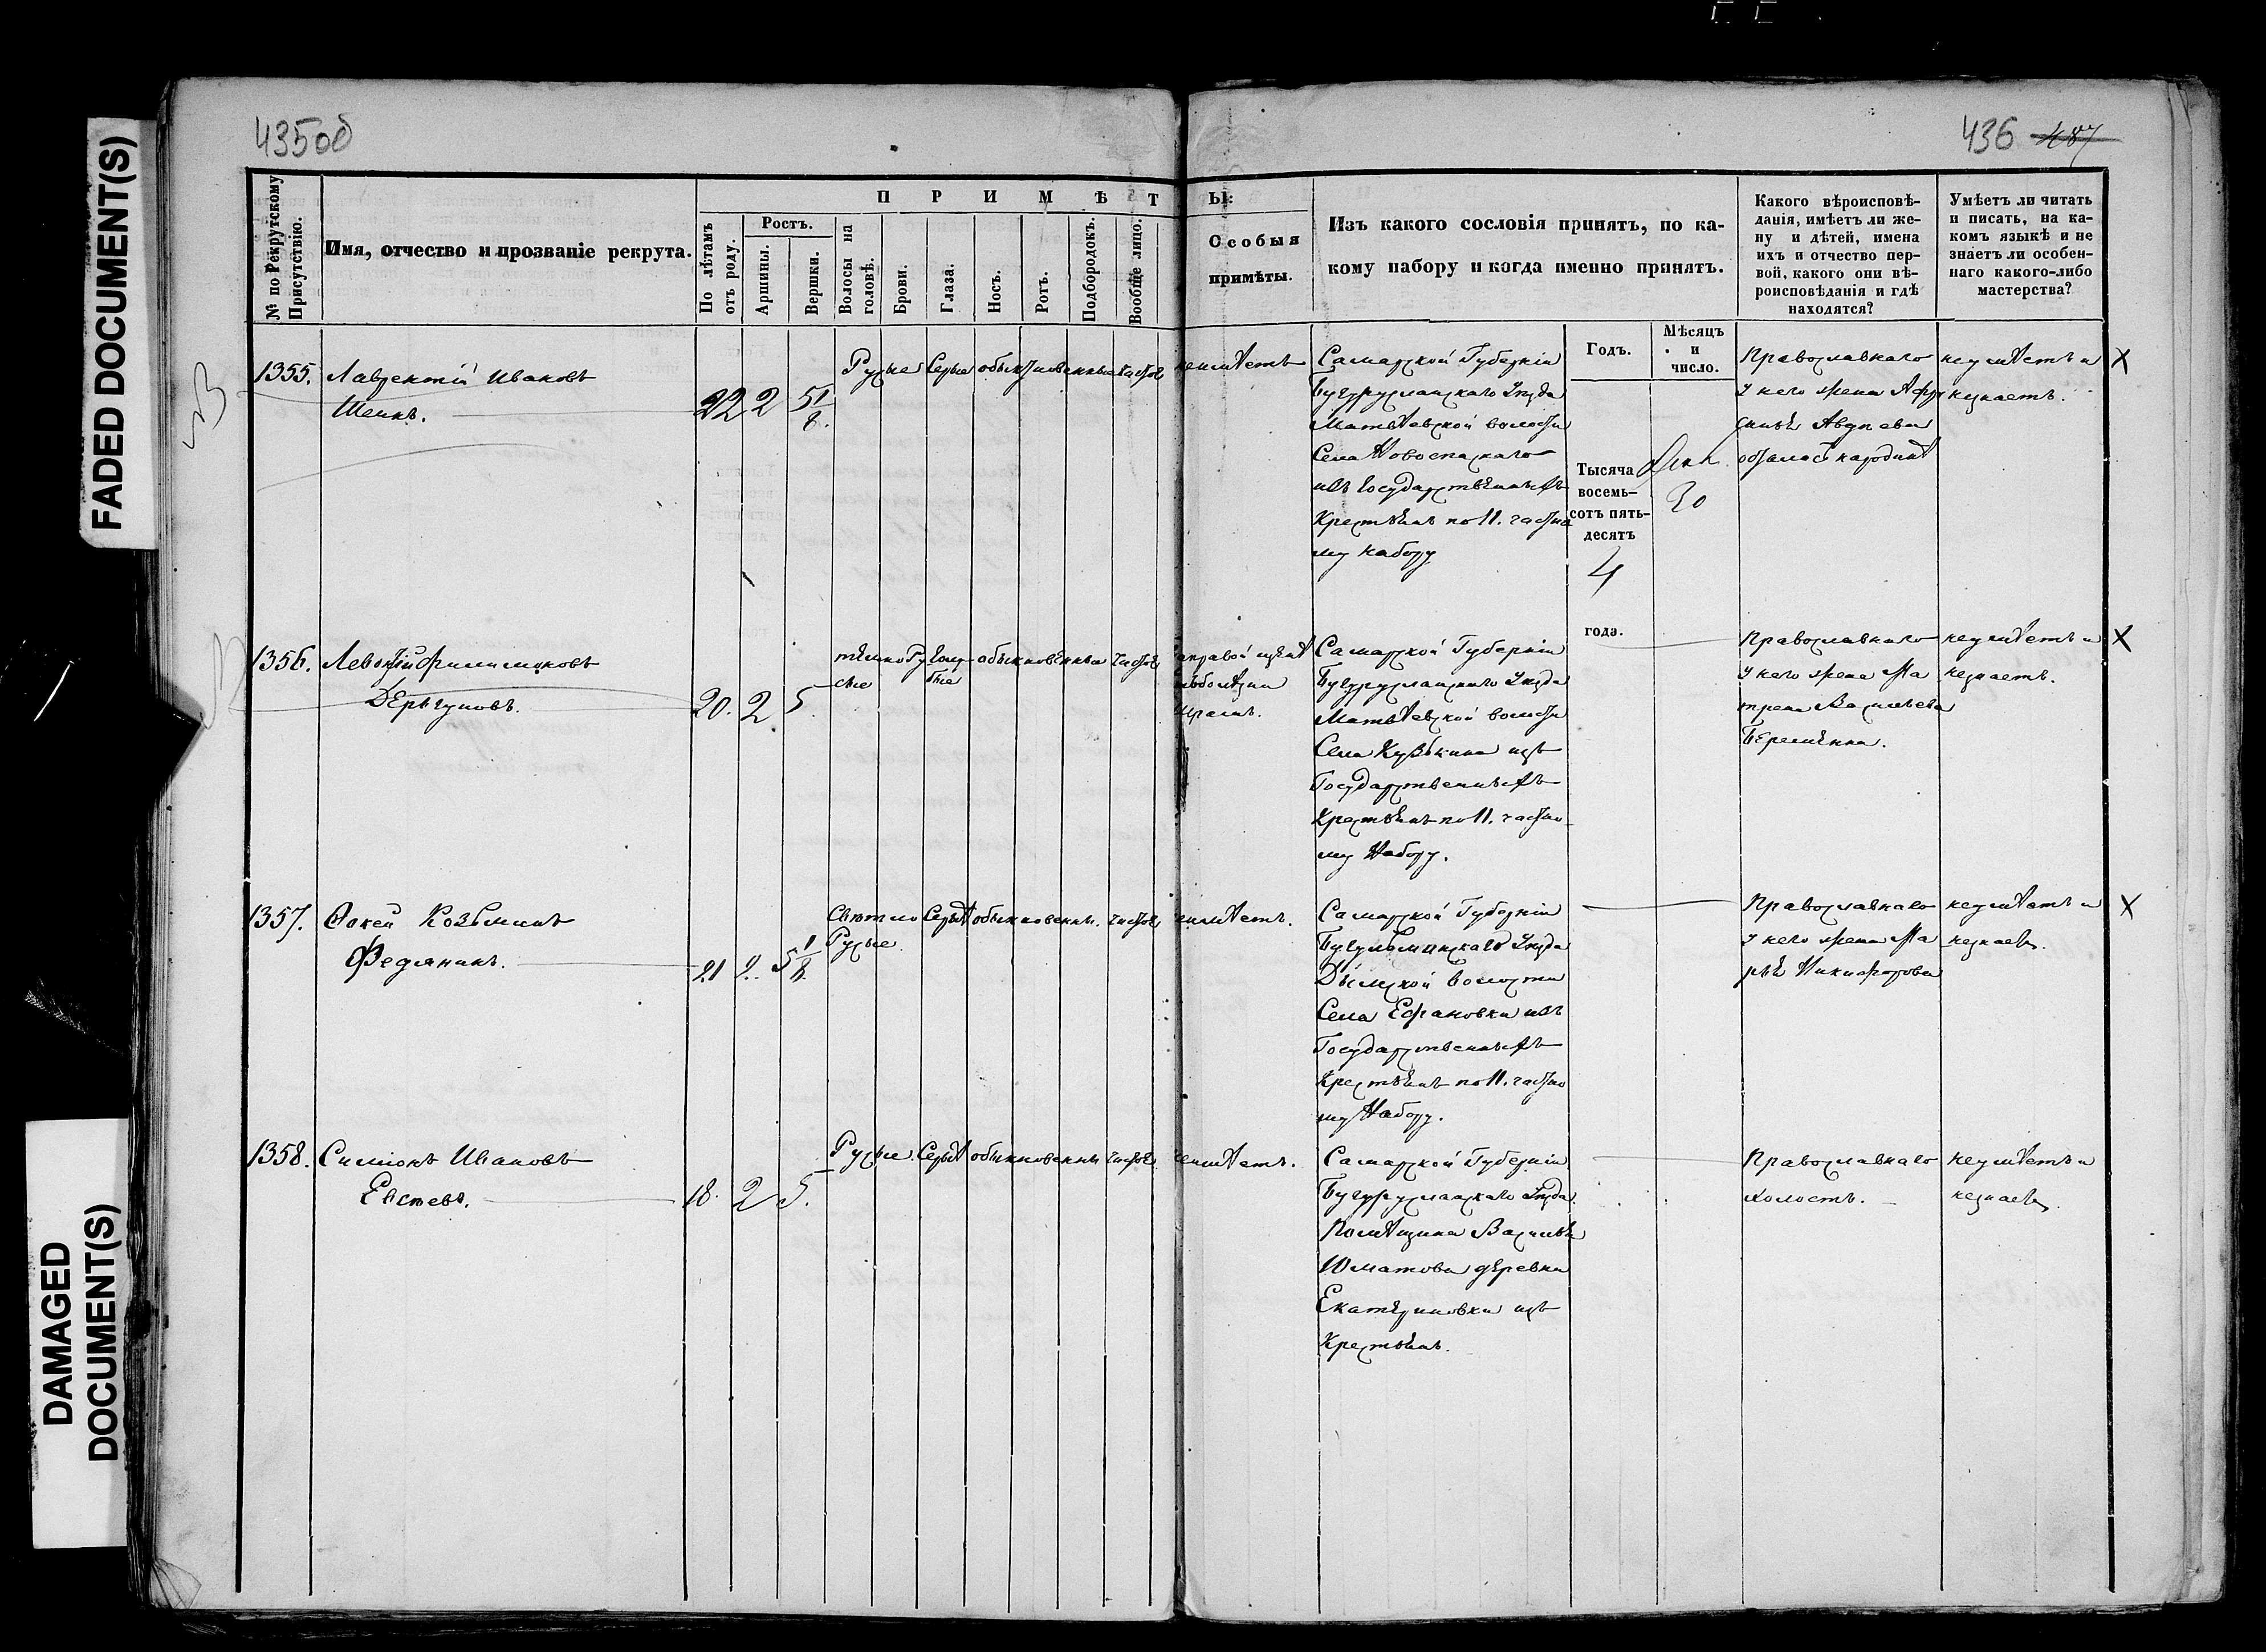 FADED DOCUMENT(S)
DAMAGED DOCUMENT(S)
435об
436 487
№ по Рекрутскому Присутствію.
Имя, отчество и прозваніе рекрута.
ПРИМѢТЫ:
По лѣтамъ отъ роду.
Ростъ.
Аршины.
Вершки.
Волосы на головѣ.
Брови.
Глаза.
Носъ.
Ротъ.
Подбородокъ.
Вообще лицо.
Особыя
примѣты.
Изъ какого сословія принятъ, по ка-
кому набору и когда именно принятъ.
Какого вѣроисповѣ-
данія, имѣетъ ли же-
ну и дѣтей, имена
ихъ и отчество пер-
вой, какого они вѣ-
роисповѣданія и гдѣ
находятся?
Умѣетъ ли читать
и писать, на ка-
комъ языкѣ и не
знаетъ ли особен-
наго какого-либо
мастерства?
Годъ.
Мѣсяцъ
и
число.
Тысяча
восемь-
сотъ пять-
десятъ
4
года.
30
1355. Лаврентій Ивановъ
Шеинъ. 22 2 5 1/8.
Русые Серые обыкновенные чистое
неимѣетъ
Самарской Губерніи
Бугурусланскаго Уѣзда
Матвѣевской волости
Села Новоспаскаго
изъ Государственныхъ
Крестьянъ по 11. частно
му набору
Православнаго
У него жена
Авдѣева
неумѣетъ и
незнаетъ.
X
1356. Левонтій Филимоновъ
Дергуновъ. 20. 2 5
темнору
сые
голу
бые
обыкновенные чистое
на правой щекѣ
Самарской Губерніи
Бугурусланскаго Уѣзда
Матвѣевской волости
Села Кузькина изъ
Государственныхъ
Крестьянъ по 11. частно
му Набору.
Православнаго
У него жена Ма
трена Васильева
Беременна.
неумѣетъ и
незнаетъ.
X
1357. Фокей Козьминъ
Федянинъ. 21 2. 5 1/8.
Свѣтло
Русые
Серые обыкновенн. чистое
неимѣетъ.
Самарской Губерніи
Бугульминскаго Уѣзда
Дымской волости
Села Ефановки изъ
Государственныхъ
Крестьянъ по 11. частно
му Набору.
Православнаго
У него жена Ма
рья Никифорова
неумѣетъ и
незнаетъ.
X
1358. Симіонъ Ивановъ
Евстевъ. 18. 2 5.
Русые. Серые обыкновенны чистое
неимѣетъ.
Самарской Губерніи
Бугурусланскаго Уѣзда
Помѣщика Василья
Юматова деревни
Екатериновки изъ
Крестьянъ.
Православнаго
холостъ.
неумѣетъ и
незнаетъ.